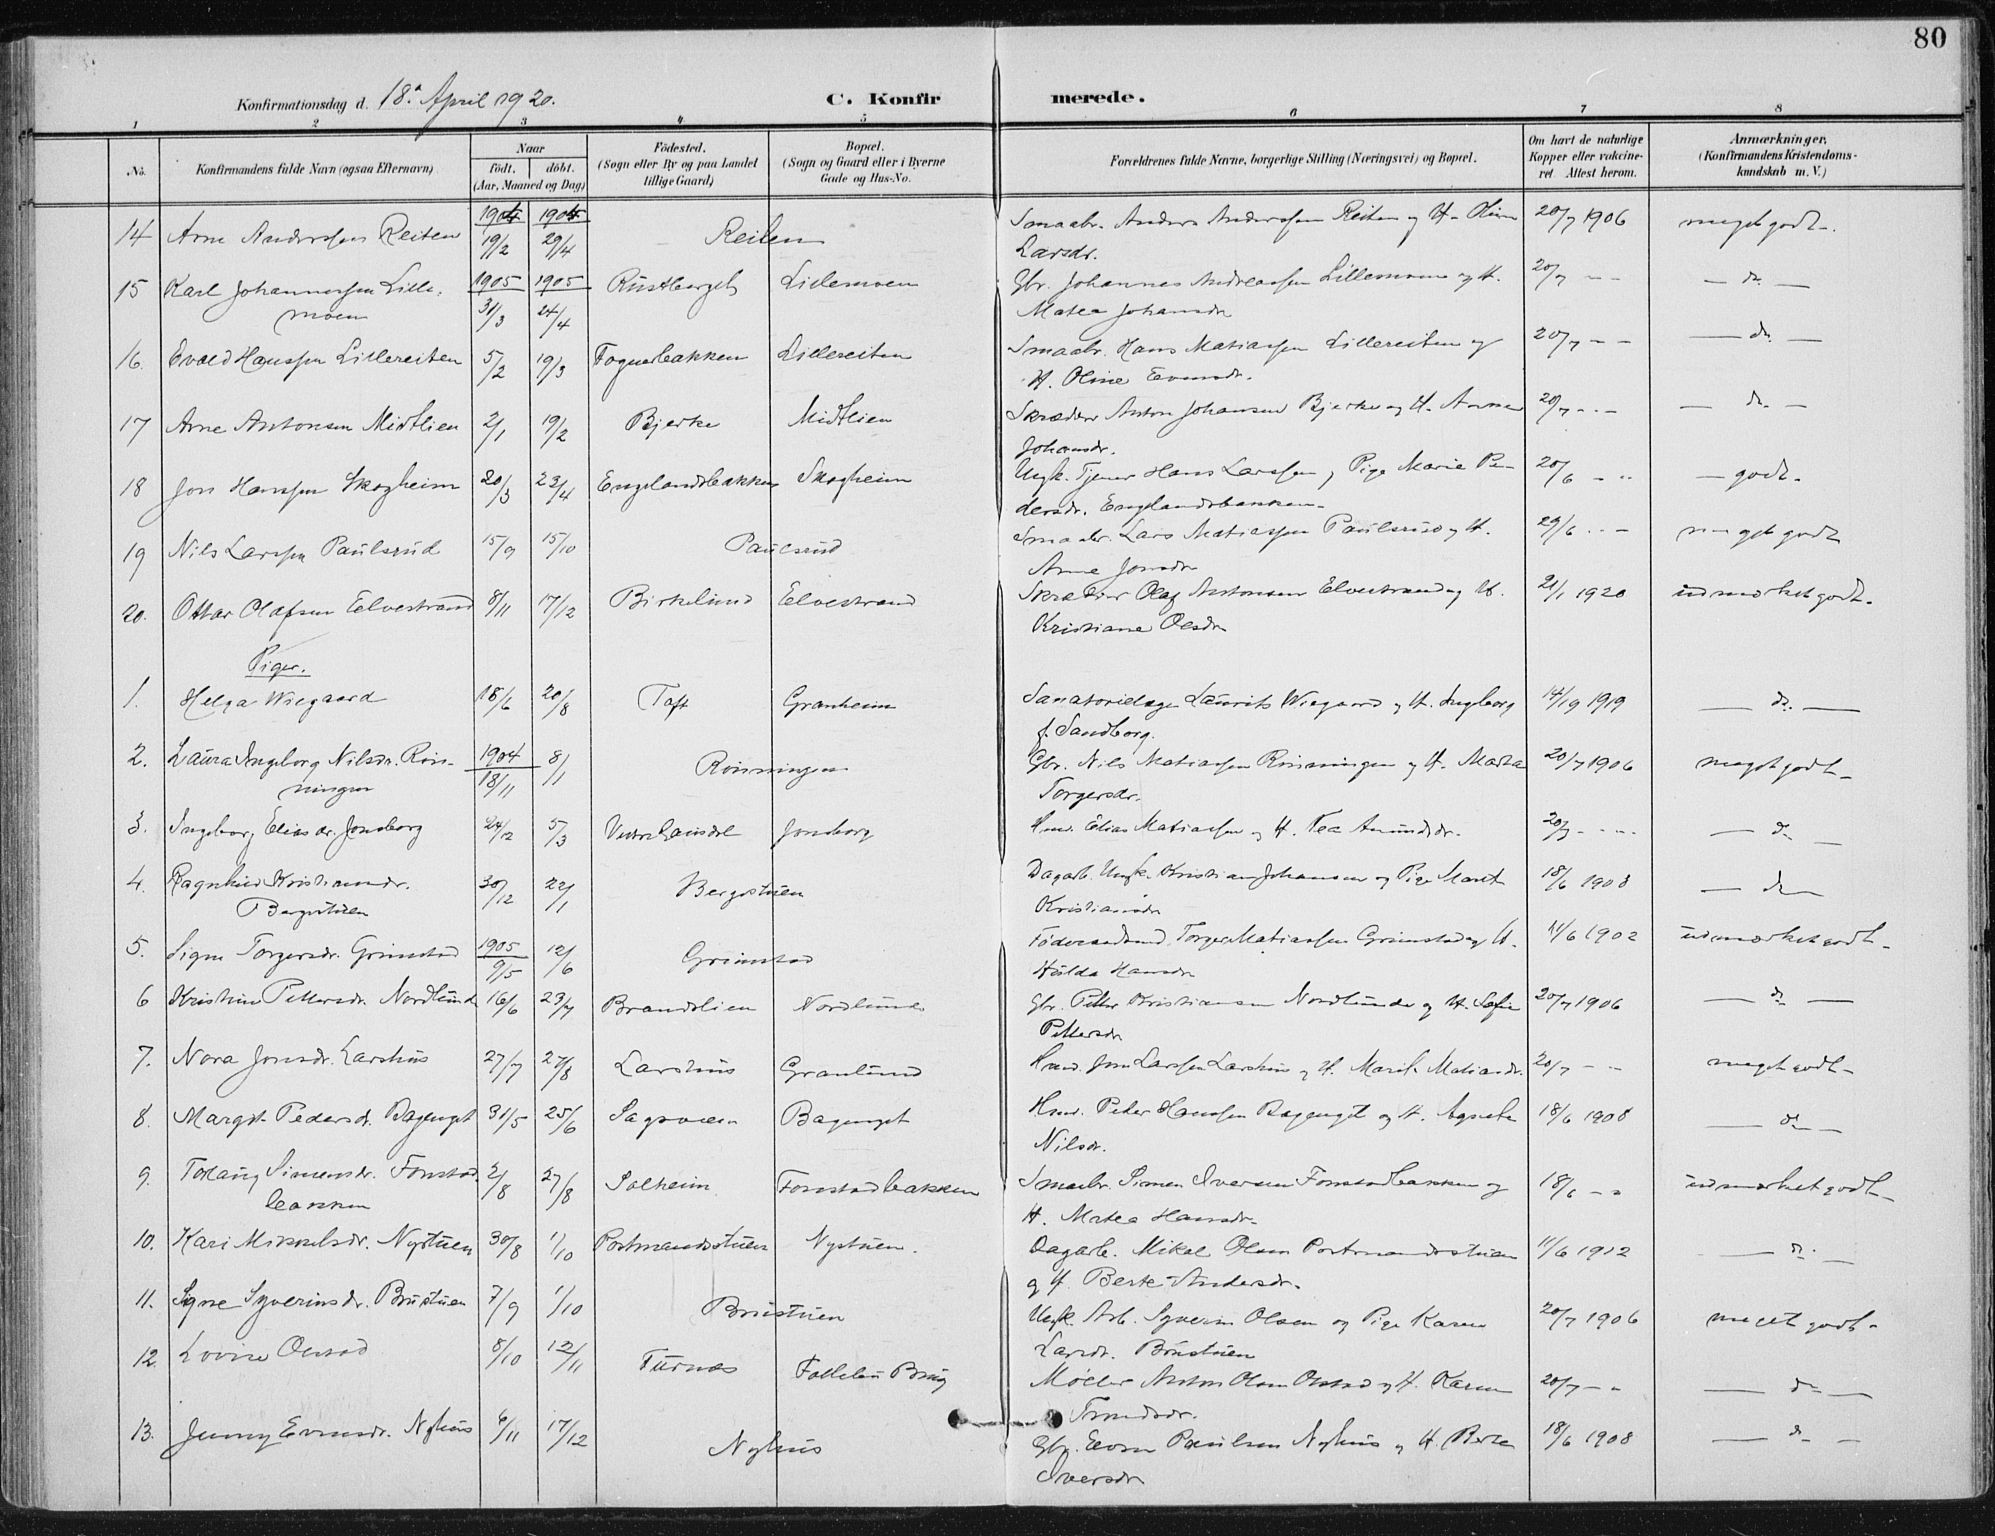 80
Konfirmationsdag d. 18de April 1920.
C. Konfirmerede.
1 2 3 4 5 6 7 8
No.
Konfirmandens fulde Navn (ogsaa Efternavn)
Naar
födt. döbt.
(Aar, Maaned og Dag)
Födested.
(Sogn eller By og paa Landet
tillige Gaard)
Bopæl.
(Sogn og Gaard eller i Byerne
Gade og Hus-No.
Forældrenes fulde Navne, borgerlige Stilling (Næringsvei) og Bopæl.
Om havt de naturlige
Kopper eller vakcine-
ret. Attest herom.
Anmærkninger,
(Konfirmandens Kristendoms-
kundskab m. V.)
1904 1904
14 Arne Anderssen Reiten 19/2 29/4 Reiten Smaabr. Anders Anderssen Reiten og H. Oline 20/7 1906 meget godt.
Larsdr.
15 Karl Johannessen Lille- 1905 1905 Rustberget Lillemoen Gbr. Johannes Andreassen Lillemoen og H. 20/7 - - - do. -
moen 31/3 24/4 Matea Johansdr
16. Evald Hanssen Lillereiten 5/2 19/3 Fognerbakken Lillereiten Smaabr. Hans Matiassen Lillereiten og 20/7 - - - do. -
H. Oline Evensdr.
17 Arne Antonsen Midtlien 2/1 19/2 Bjerke Midtlien Skrædder Anton Johansen Bjerke og H. Anne 20/7 - - - do. -
Johansdr.
18 Jon Hanssen Skogheim 20/3 23/4 Englandsbakken Skogheim Ungk. Tjener Hans Larssen, Pige Marie Pe- 20/6 - " - godt.
dersdr. Englandsbakken
19 Nils Larssen Paulsrud 15/9 15/10 Paulsrud Smaabr. Lars Matiassen Paulsrud og H. 29/6 - - meget godt
Anne Jonsdr
20. Ottar Olafsen Elvestrand 8/11 17/12 Birkelund Elvestrand Skrædder Olaf Antonsen Elvestrand og H. 21/1 1920 udmærket godt.
Kristiane Olsdr
Piger.
1. Helga Wiegaard 18/6 20/8 Toft Granheim Sanatorielæge Laurits Wiegaard og H. Ingeborg 14/10 1919 - do. -
f. Sandborg.
2. Laura Ingeborg Nilsdr. Rön- 1904 8/1 Rönningen Gbr. Nils Matiassen Rönningen og H. Marta 20/7 1906 meget godt
ningen 18/11 Torgersdr.
3. Ingeborg Eliasdr. Jonsborg 24/12 5/3 Jonsborg Hmd. Elias Matiassen og H. Tea Amundsdr. 20/7 - - - do -
4. Ragnhild Kristiansdr. 30/12 22/1 Bergstuen Dagarb. Ungk. Kristian Johansen og Pige Marit 18/6 1908 - do -
Bergstuen Kristiansdr
5. Signe Torgersdr. Grimstad 1905 12/6 Grimstad Föderaadsmd. Torger Matiassen Grimstad og H. 11/6 1902 udmærket godt.
9/5 Hulda Hansdr
6 Kristine Pettersdr. Nordlund 16/6 23/7 Brandslien Nordlunde Gbr. Petter Kristiansen Nordlunde og H. Sofie 20/7 1906 - do -
Pettersdr
7. Nora Jonsdr. Larshus 27/7 27/8 Larshus Granlund Hmd. Jon Larssen Larshus og H. Marit Matiasdr. 20/7 - - meget godt
8. Margit Pedersdr. Bagenget 31/5 25/6 Sagveien Bagenget Hmd. Peder Hanssen Bagenget og H. Agnete 18/6 1908 - do -
Nilsdr.
9. Tollaug Simensdr. Fonstad- 2/8 27/8 Solheim Fonstadbakken Smaabr. Simen Iversen Fonstadbakken og 18/6 - " udmærket godt
bakken H. Matea Hansdr.
10. Kari Mikkelsdr. Nystuen 30/8 1/10 Postmandsstuen Nystuen. Dagarb. Mikel Olsen Postmandsstuen 11/6 1912 - do. -
og H. Berte Andersdr.
11. Signe Syverinsdr. Brustuen 7/9 1/10 Brustuen Ungk. Arb. Syverin Olsen og Pige Karen 20/7 1906 meget godt.
Larsdr. Brustuen
12. Lovise Olstad 8/10 12/11 Turnæs Follebu Brug Möller Anton Olsen Olstad og H. Karen 20/7 - " - do -
13. Jenny Evensdr. Nyhus 6/11 17/12 Nyhus Gbr. Even Paulsen Nyhus og H. Berte 18/6 1908 - do -
Iversdr